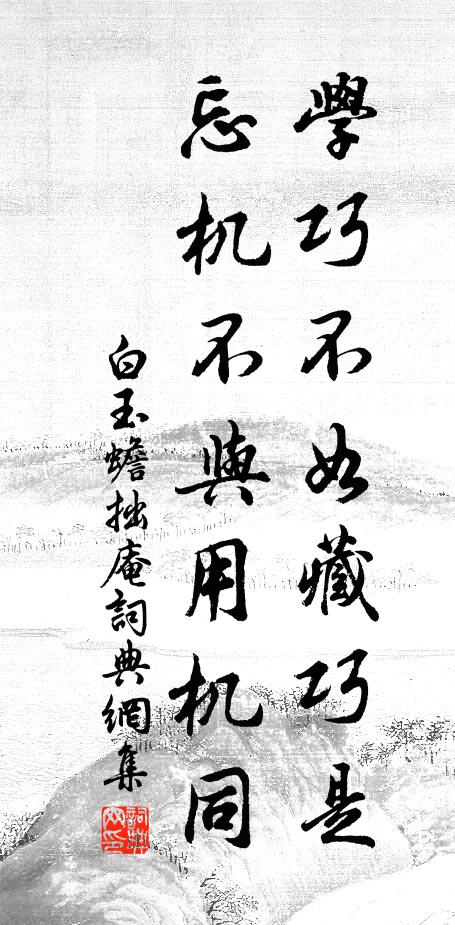 學巧不如藏巧是
忘机不與用机同
白玉蟾拙庵詞典網集